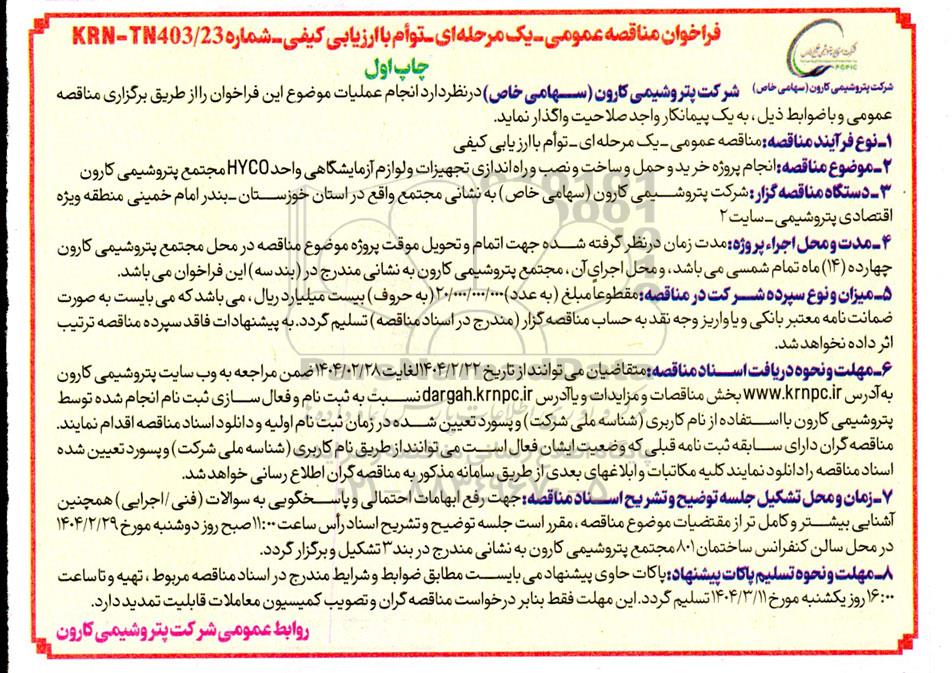 فراخوان مناقصه عمومی ـ یک مرحله‌ای ـ توأم با ارزیابی کیفی ـ شماره KRN-TN403/23
چاپ اول
PGPIC
شرکت پتروشیمی کارون (سهامی خاص)
شرکت پتروشیمی کارون (سهامی خاص) درنظر دارد انجام عملیات موضوع این فراخوان را از طریق برگزاری مناقصه
عمومی و با ضوابط ذیل، به یک پیمانکار واجد صلاحیت واگذار نماید.
۱ـ نوع فرآیند مناقصه: مناقصه عمومی ـ یک مرحله‌ای ـ توأم با ارزیابی کیفی
۲ـ موضوع مناقصه: انجام پروژه خرید و حمل و ساخت و نصب و راه‌اندازی تجهیزات و لوازم آزمایشگاهی واحد HYCO مجتمع پتروشیمی کارون
۳ـ دستگاه مناقصه گزار: شرکت پتروشیمی کارون (سهامی خاص) به نشانی مجتمع واقع در استان خوزستان ـ بندر امام خمینی منطقه ویژه
اقتصادی پتروشیمی ـ سایت ۲
۴ـ مدت و محل اجراء پروژه: مدت زمان درنظر گرفته شده جهت اتمام و تحویل موقت پروژه موضوع مناقصه در محل مجتمع پتروشیمی کارون
چهارده (۱۴) ماه تمام شمسی می باشد، و محل اجرای آن، مجتمع پتروشیمی کارون به نشانی مندرج در (بند سه) این فراخوان می باشد.
۵ـ میزان و نوع سپرده شرکت در مناقصه: مقطوعاً مبلغ (به عدد) ۲۰/۰۰۰/۰۰۰/۰۰۰ (به حروف) بیست میلیارد ریال، می باشد که می بایست به صورت
ضمانت نامه معتبر بانکی و یا واریز وجه نقد به حساب مناقصه گزار (مندرج در اسناد مناقصه) تسلیم گردد. به پیشنهادات فاقد سپرده مناقصه ترتیب
اثر داده نخواهد شد.
۶ـ مهلت و نحوه دریافت اسناد مناقصه: متقاضیان می توانند از تاریخ ۱۴۰۴/۲/۲۲ لغایت ۱۴۰۴/۰۲/۲۸ ضمن مراجعه به وب سایت پتروشیمی کارون
به آدرس www.krnpc.ir بخش مناقصات و مزایدات و یا آدرس dargah.krnpc.ir نسبت به ثبت نام و فعال سازی ثبت نام انجام شده توسط
پتروشیمی کارون با استفاده از نام کاربری (شناسه ملی شرکت) و پسورد تعیین شده در زمان ثبت نام اولیه و دانلود اسناد مناقصه اقدام نمایند.
مناقصه گران دارای سابقه ثبت نامه قبلی که وضعیت ایشان فعال است می توانند از طریق نام کاربری (شناسه ملی شرکت) و پسورد تعیین شده
اسناد مناقصه را دانلود نمایند کلیه مکاتبات و ابلاغهای بعدی از طریق سامانه مذکور به مناقصه گران اطلاع رسانی خواهد شد.
۷ـ زمان و محل تشکیل جلسه توضیح و تشریح اسناد مناقصه: جهت رفع ابهامات احتمالی و پاسخگویی به سوالات (فنی / اجرایی) همچنین
آشنایی بیشتر و کامل تر از مقتضیات موضوع مناقصه، مقرر است جلسه توضیح و تشریح اسناد رأس ساعت ۱۱:۰۰ صبح روز دوشنبه مورخ ۱۴۰۴/۲/۲۹
در محل سالن کنفرانس ساختمان ۸۰۱ مجتمع پتروشیمی کارون به نشانی مندرج در بند ۳ تشکیل و برگزار گردد.
۸ـ مهلت و نحوه تسلیم پاکات پیشنهاد: پاکات حاوی پیشنهاد می بایست مطابق ضوابط و شرایط مندرج در اسناد مناقصه مربوط، تهیه و تا ساعت
۱۶:۰۰ روز یکشنبه مورخ ۱۴۰۴/۳/۱۱ تسلیم گردد. این مهلت فقط بنابر درخواست مناقصه گران و تصویب کمیسیون معاملات قابلیت تمدید دارد.
روابط عمومی شرکت پتروشیمی کارون